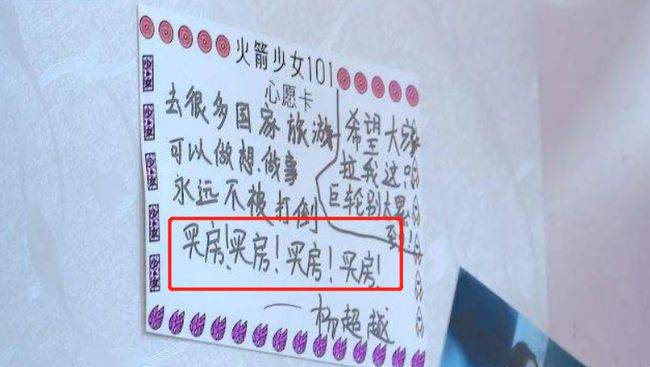 火箭少女101
心愿卡
去很多国家旅游
可以做想做事
永远不被打倒
买房!买房!买房!买房!
希望大家
拉我这只
巨轮别太累
到!
一杨超越